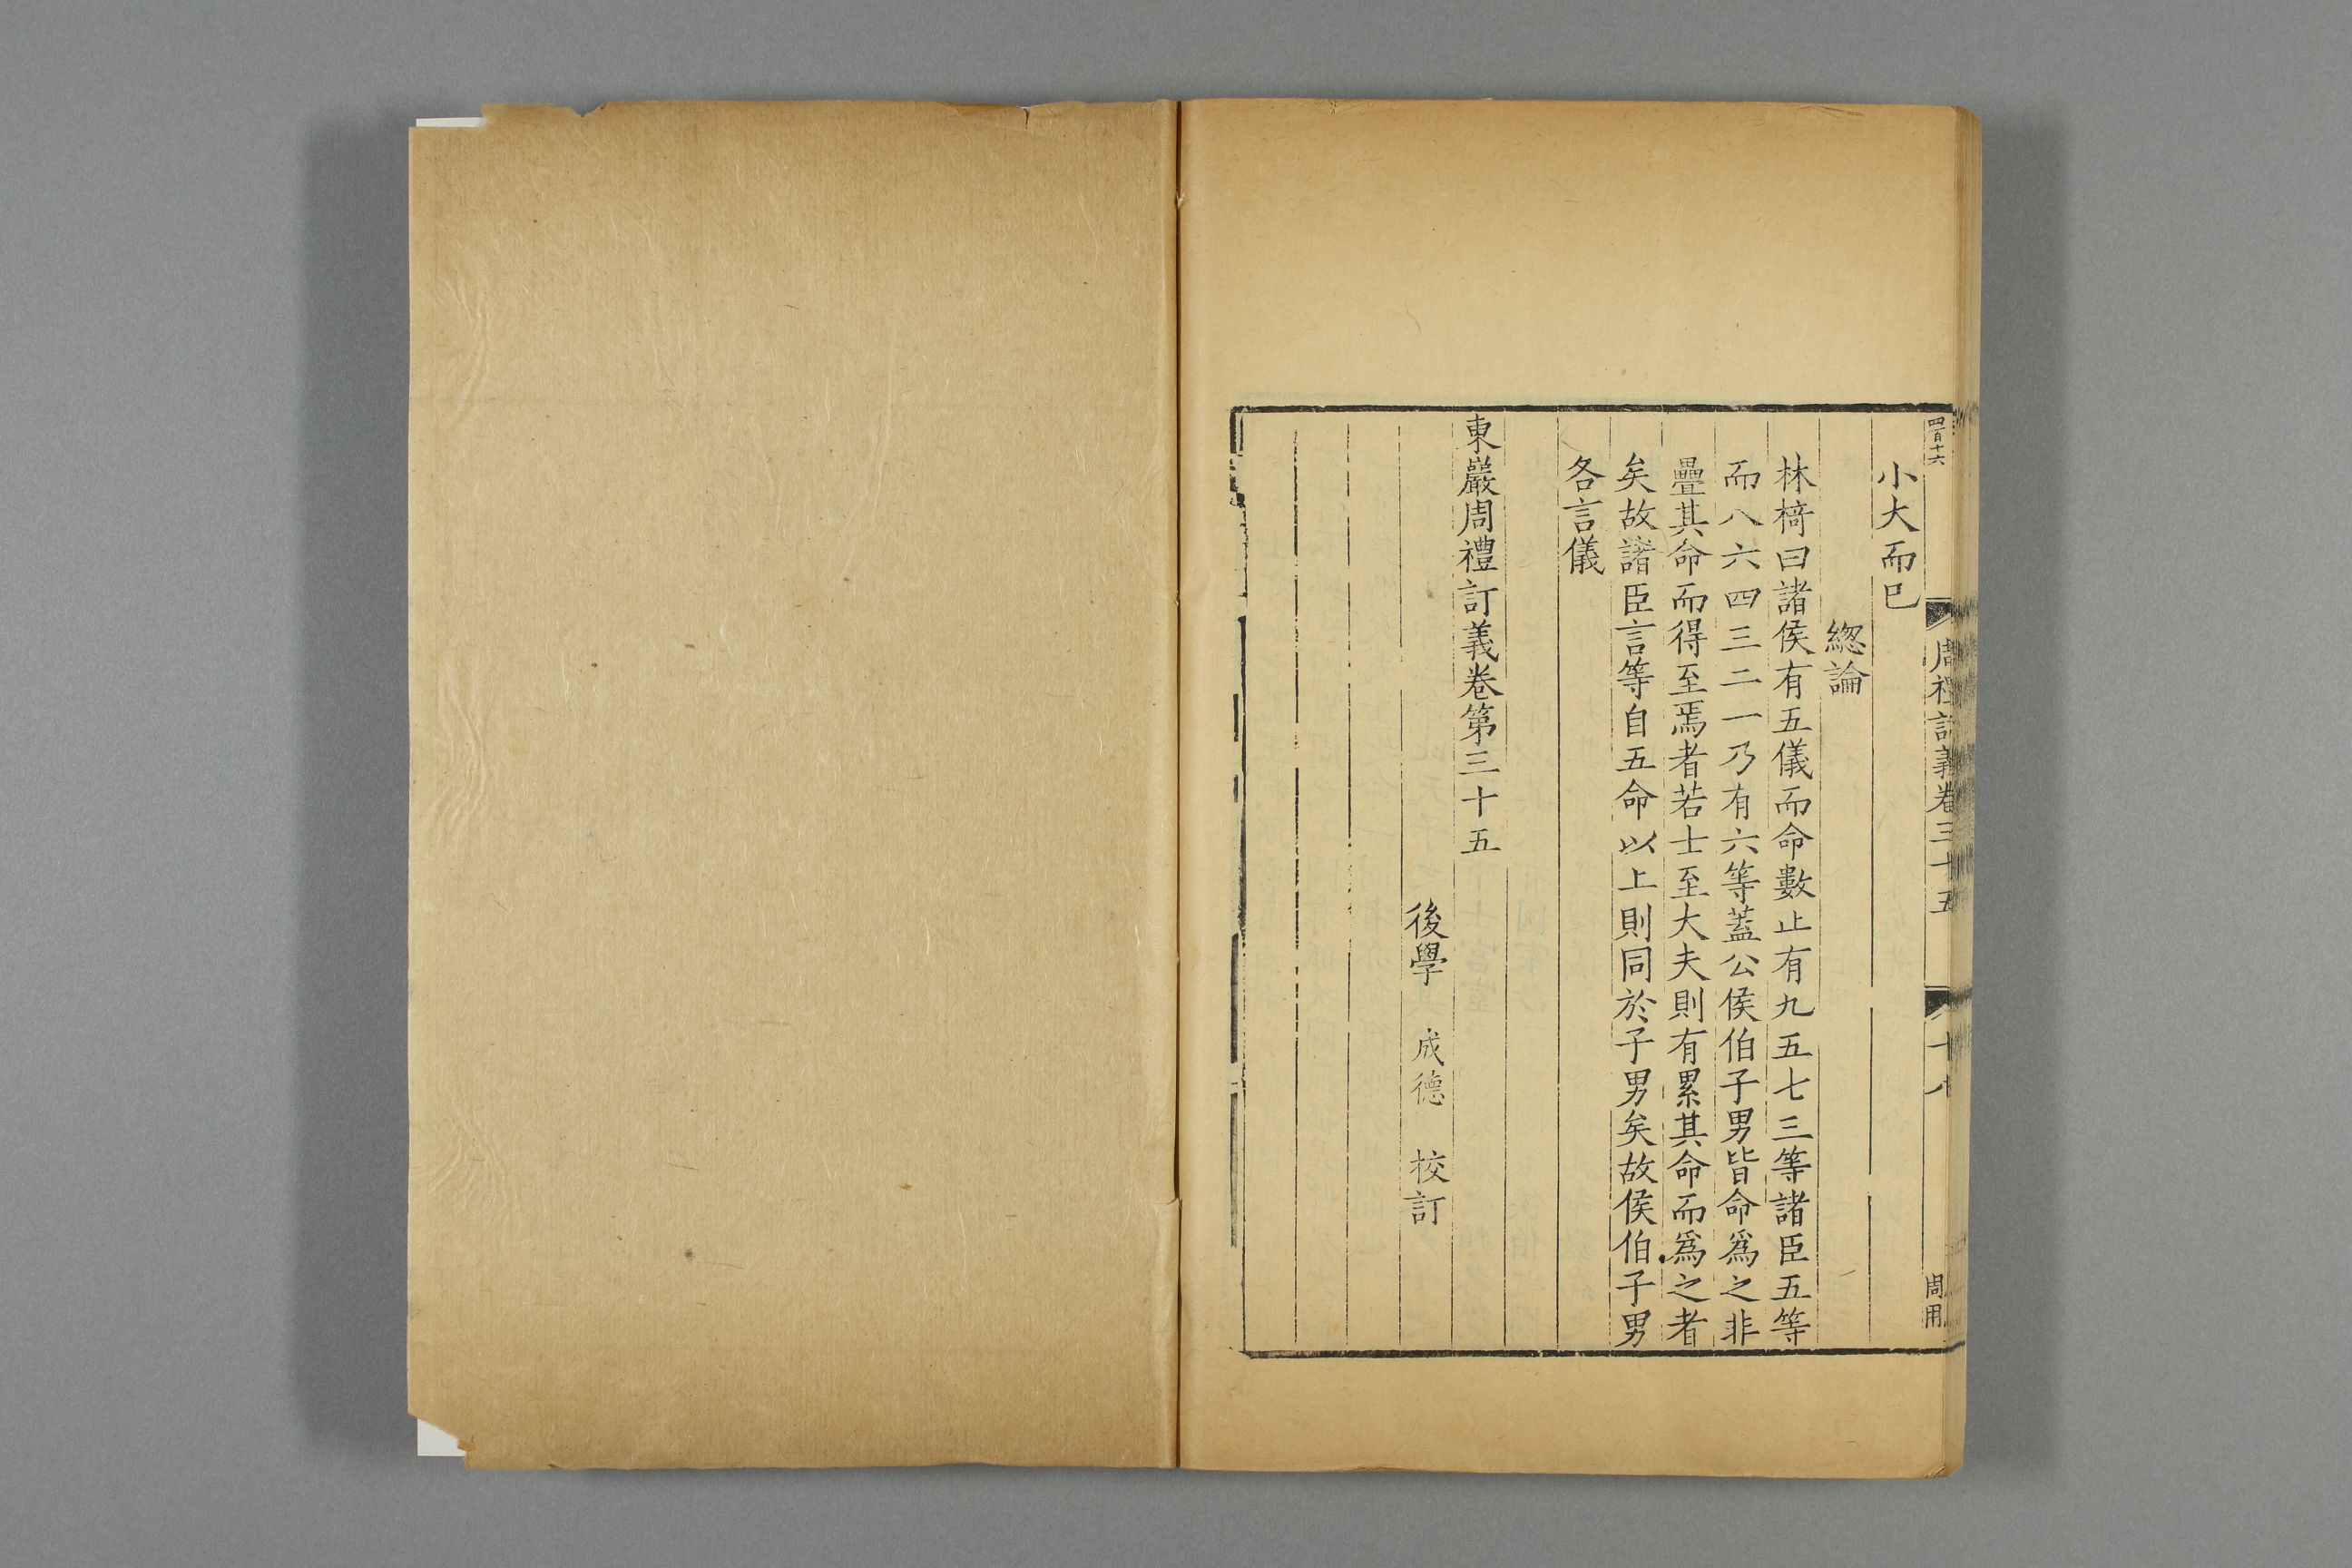 四百十六
周禮訂義卷三十五
十八
周用
小大而巳
緫論
林椅曰諸侯有五儀而命數止有九五七三等諸臣五等
而八六四三二一乃有六等蓋公侯伯子男皆命爲之非
疊其命而得至焉者若士至大夫則有累其命而爲之者
矣故諸臣言等自五命以上則同於子男矣故侯伯子男
各言儀
東巖周禮訂義卷第三十五
後學 成德 校訂